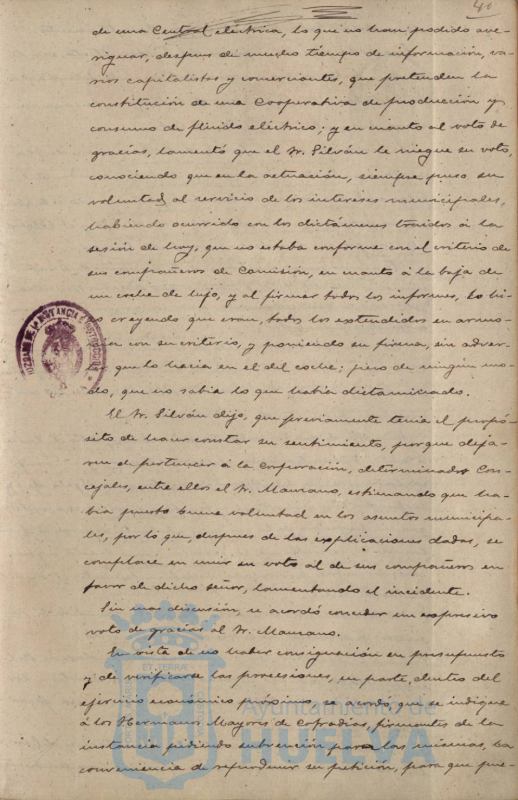 40
de una Central eléctrica, lo que no han podido ave-
riguar, despues de mucho tiempo de información, va-
rios capitalistas y comerciantes, que pretenden la
constitución de una Cooperativa de producción y
consumo de flúido eléctrico; y en cuanto al voto de
gracias, lamentó que el Sr. Silván le niegue su voto,
conociendo que en la actuación, siempre puso su
voluntad al servicio de los intereses municipales,
habiendo ocurrido con los dictámenes traidos á la
sesión de hoy, que no estaba conforme con el criterio de
sus compañeros de Comisión, en cuanto á la baja de
un coche de lujo, y al firmar todos los informes, lo hi-
zo creyendo que eran, todos los extendidos en armo-
nía con su criterio, y poniendo su firma, sin adver-
que lo hacia en el del coche; pero de ningun mo-
do, que no sabia lo que habia dictaminado.
El Sr. Silván dijo, que previamente tenia el propó-
sito de hacer constar su sentimiento, porque dejа-
ren de pertenecer á la Corporación, determinados Con-
cejales, entre ellos el Sr. Manzano, estimando que ha-
bia puesto buena voluntad en los asuntos municipa-
les, por lo que, despues de las explicaciones dadas, se
complace en unir su voto al de sus compañeros en
favor de dicho señor, lamentando el incidente.
Sin mas discusión, se acordó conceder un expresivo
voto de gracias al Sr. Manzano.
En vista de no haber consignación en presupuesto
y de verificarse las procesiones, en parte, dentro del
ejercicio económico próximo, se acordó, que se indique
á los Hermanos Mayores de Cofradías, firmantes de la
instancia pidiendo subvención para las mismas, la
conveniencia de refundir su petición, para que pue-
JUZGADO DE 1ª INSTANCIA E INSTRUCCION
Ayuntamiento de
HUELVA